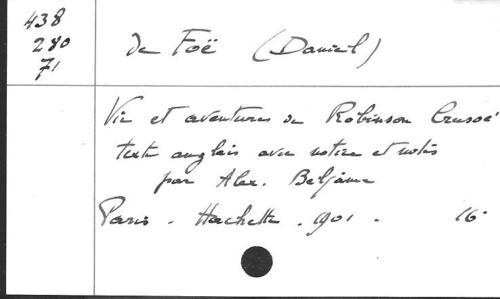 438
280
71
de Foë (Daniel)
Vie et aventures de Robinson Crusoé
texte anglais avec notice et notes
par Alex. Beljame
Paris - Hachette - 1901 - 16°